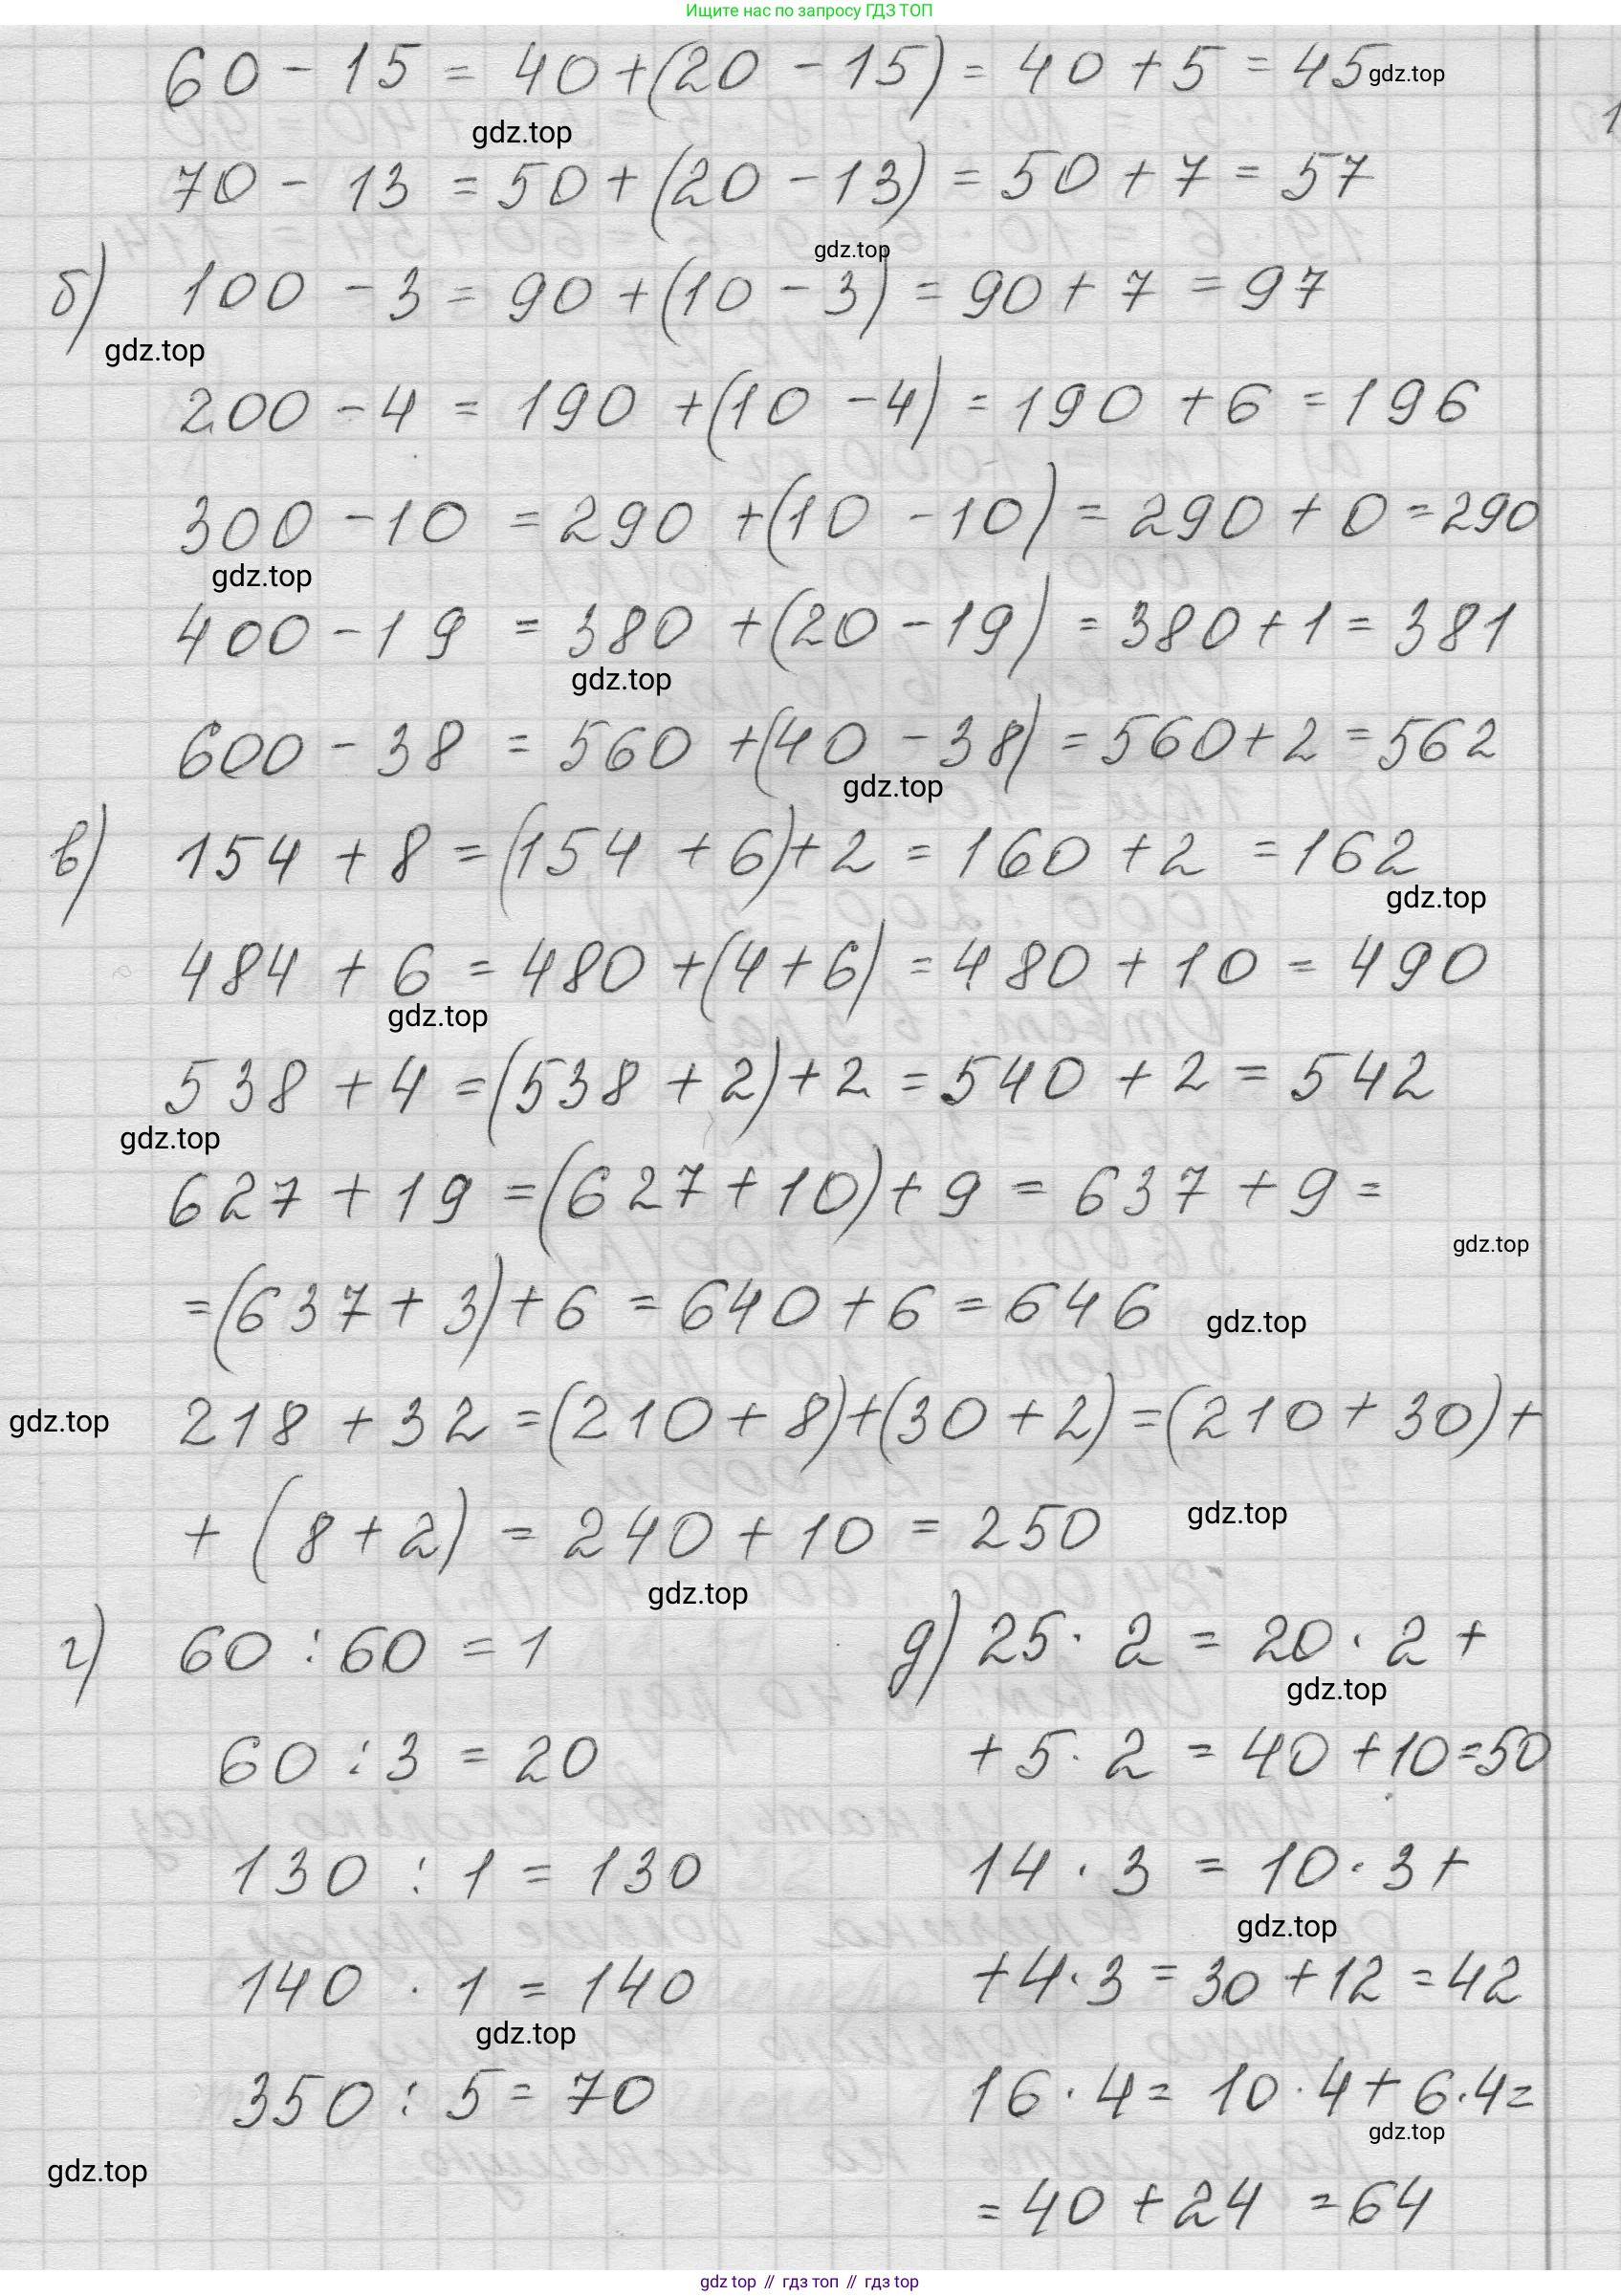 Ищите нас по запросу ГДЗ ТОП
60 - 15 = 40 + (20 - 15) = 40 + 5 = 45 gdz.top
gdz.top
70 - 13 = 50 + (20 - 13) = 50 + 7 = 57
gdz.top
б) 100 - 3 = 90 + (10 - 3) = 90 + 7 = 97
gdz.top
200 - 4 = 190 + (10 - 4) = 190 + 6 = 196
300 - 10 = 290 + (10 - 10) = 290 + 0 = 290
gdz.top
400 - 19 = 380 + (20 - 19) = 380 + 1 = 381
gdz.top
600 - 38 = 560 + (40 - 38) = 560 + 2 = 562
gdz.top
в) 154 + 8 = (154 + 6) + 2 = 160 + 2 = 162
gdz.top
484 + 6 = 480 + (4 + 6) = 480 + 10 = 490
gdz.top
538 + 4 = (538 + 2) + 2 = 540 + 2 = 542
gdz.top
627 + 19 = (627 + 10) + 9 = 637 + 9 =
gdz.top
= (637 + 3) + 6 = 640 + 6 = 646 gdz.top
gdz.top 218 + 32 = (210 + 8) + (30 + 2) = (210 + 30) +
+ (8 + 2) = 240 + 10 = 250 gdz.top
gdz.top
г) 60 : 60 = 1
60 : 3 = 20
130 : 1 = 130
140 · 1 = 140
gdz.top
350 : 5 = 70
gdz.top
д) 25 · 2 = 20 · 2 +
gdz.top
+ 5 · 2 = 40 + 10 = 50
14 · 3 = 10 · 3 +
gdz.top
+ 4 · 3 = 30 + 12 = 42
16 · 4 = 10 · 4 + 6 · 4 =
gdz.top
= 40 + 24 = 64
gdz top // гдз топ // гдз top